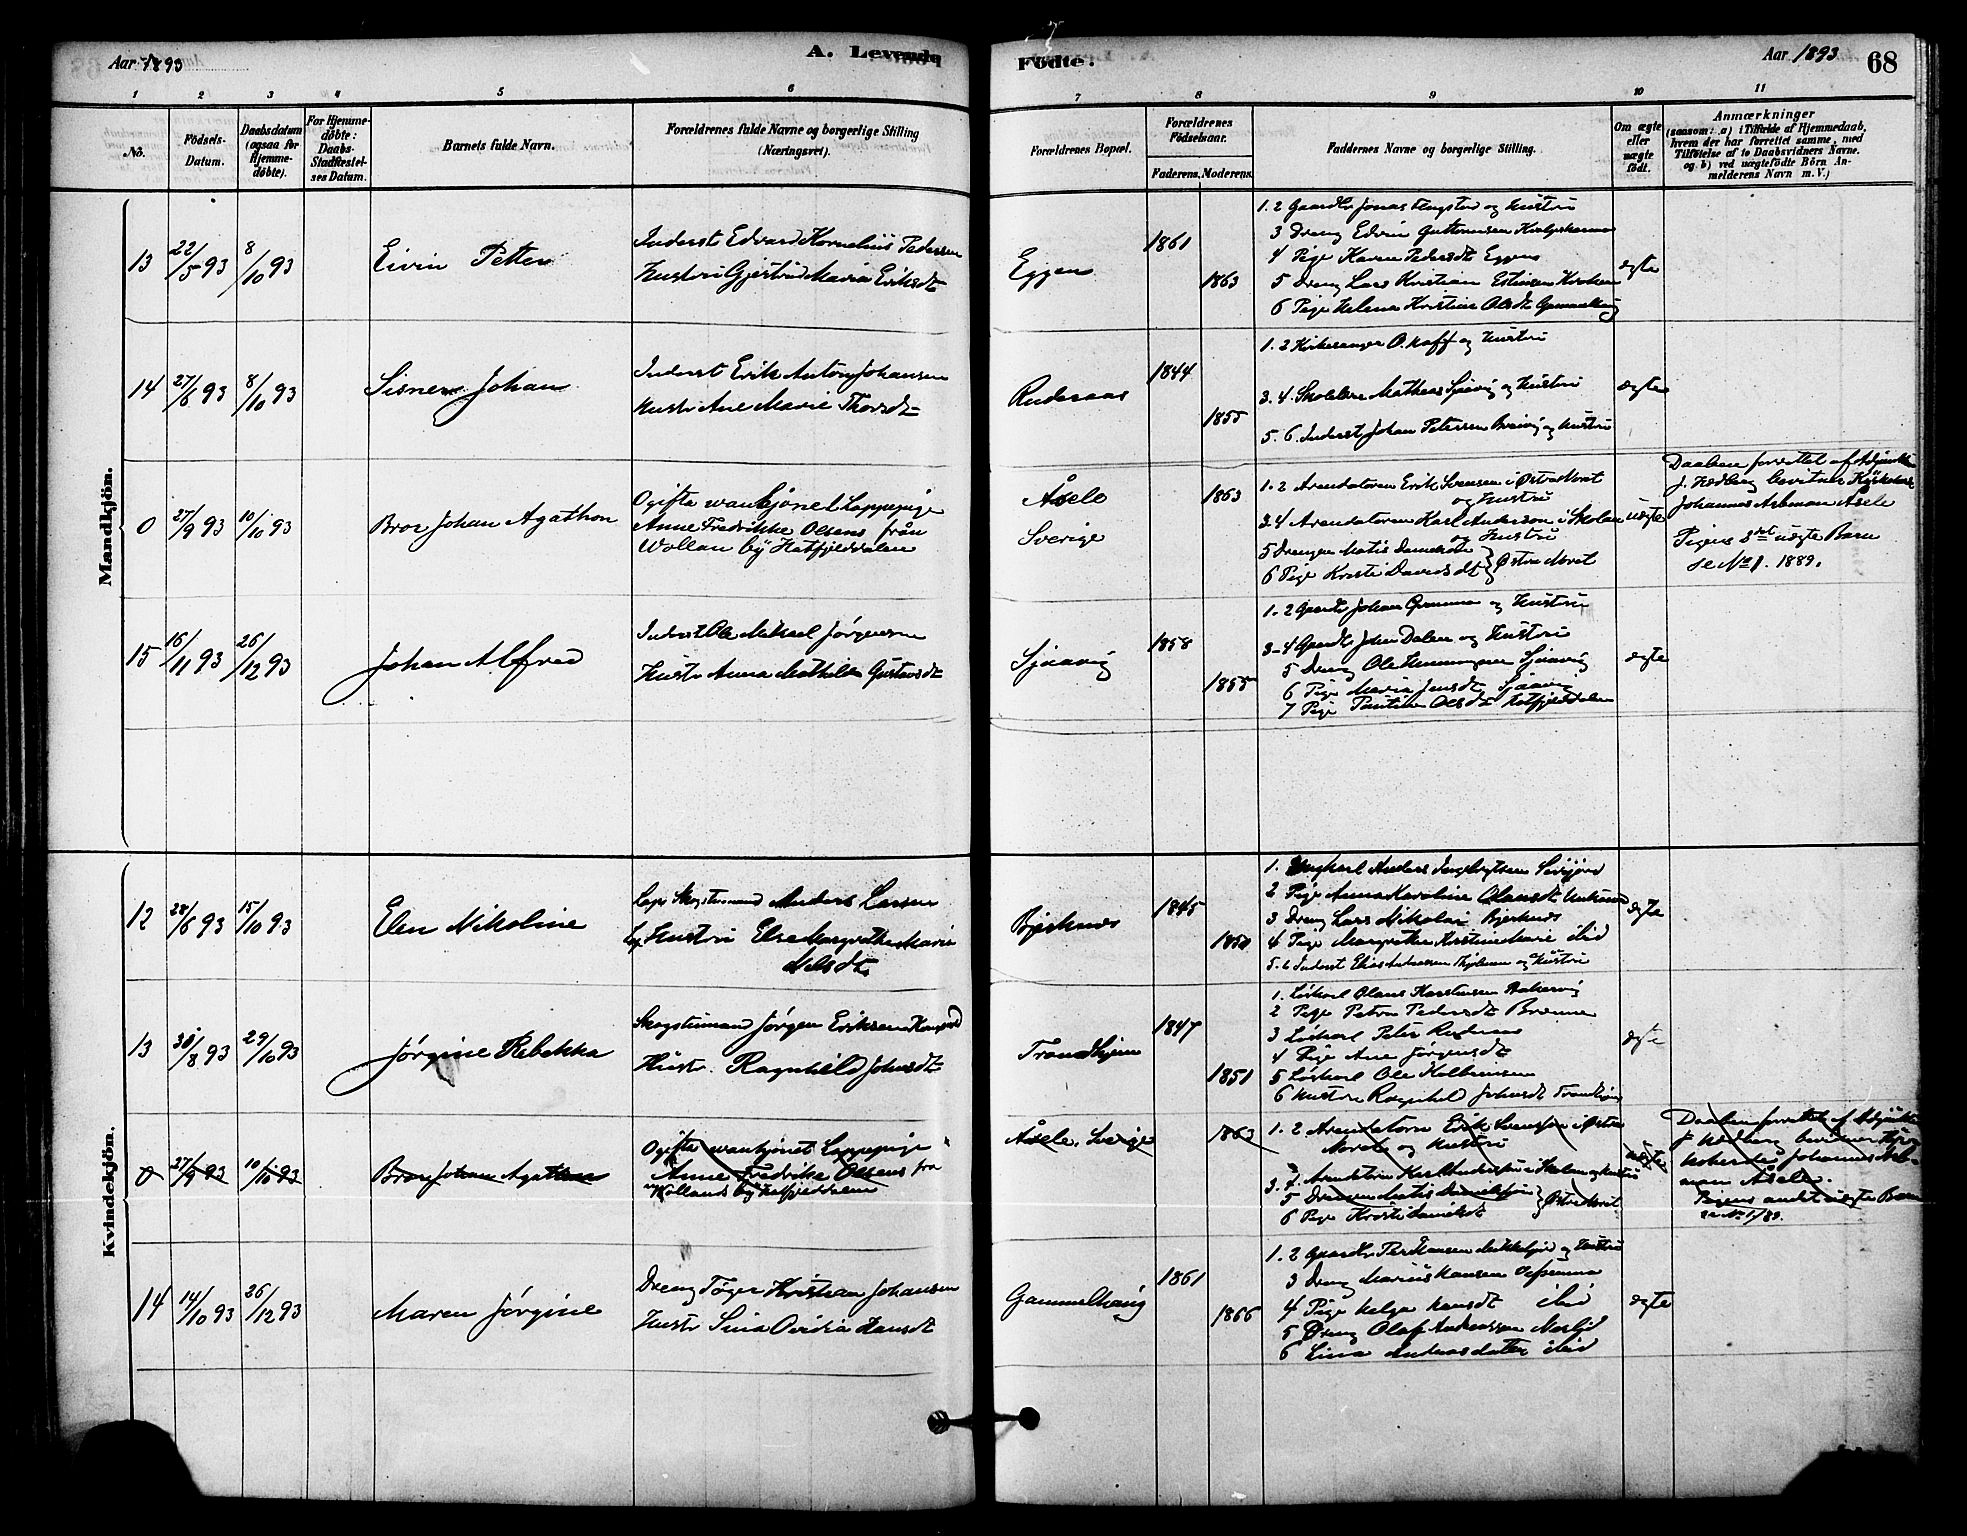 Aar 1893
A. Levende
Fødte.
Aar 1893
68
1 2 3 4 5 6 7 8 9 10 11
No.
Fødsels-
Datum.
Daabsdatum
(ogsaa for
Hjemme-
døbte).
For Hjemme-
døbte:
Daabs-
Stadfæstel-
ses Datum.
Barnets fulde Navn.
Forældrenes fulde Navne og borgerlige Stilling
(Næringsvei).
Forældrenes Bopæl.
Forældrenes
Fødselsaar.
Faderens. Moderens.
Faddernes Navne og borgerlige Stilling.
Om ægte
eller
uægte
født.
Anmærkninger
(saasom: a) i Tilfælde af Hjemmedaab,
hvem der har forrettet samme, med
Tilføielse af to Daabsvidners Navne,
og b) ved uægtefødte Børn An-
melderens Navn m. V.)
Mandkjøn.
13
22/5 93
8/10 93
Eivin Petter
Inderst Edvard Kornelius Pedersen
Hustru Gjertrud Maria Eriksdt
Eggen
1861
1863
1. 2 Gaardbr Jonas og Hustru
3 Dreng Edvin
4 Pige Karen Pedersdt Eggen
5 Dreng Lars Kristian Estensen
6 Pige Helena Kristine Olsdt
ægte
14
27/6 93
8/10 93
Johan
Inderst Erik Anton Johansen
Hustr Ane Marie Thorsdt
1844
1855
1. 2 Kirkesanger O. Hoff og Hustru
3. 4. Skolelær Mathias Sjaavig og Hustru
5. 6. Inderst Johan Petersen og Hustru
ægte
0
27/9 93
10/10 93
Bror Johan Agathon
Ogifta vankjönet Lappepige
Anne Fredrikke Olsens från
Wollan by Hatfjelddalen
Åsele
Sverige
1863
1. 2 Arendatoren Erik Svensson i Östra Noret
og Hustru
3. 4 Arendatoren Karl Anderson i Skolan
og Hustru
5 Drengen Matis
6 Pige Kristi
Östra Noret
uægte
Daaben forrettet af Adjunkten
J. Hedberg
Johannes Asbman Åsele
Pigens 2det uægte Barn
se No 1. 1889.
15
16/11 93
26/12 93
Johan Alfred
Inderst Ole Mikael Jørgensen
Hustr Anna Mathilde Gustavsdt
Sjaavig
1858
1855
1. 2 Gaardbr Johan og Hustru
3-4 Gaardbr Johan Dalen og Hustru
5 Dreng Ole Sjaavig
6 Pige Maria Jensdt Sjaavig
7 Pige Olsdt Hatfjelddalen
ægte
Kvindekjøn.
12
28/6 93
15/10 93
Elen Nikoline
Lap Skogstemand Anders Larsen
Hustru Else Margrethe Marie
Nilsdt
1845
1850
1. Ungkarl Anders
2 Pige Anna Karoline
3 Dreng Lars Nikolai
4 Pige Margrethe Kristine Marie ibid
5. 6 Inderst Elias Andersen og Hustru
ægte
13
30/8 93
29/10 93
Jørgine Rebekka
Skogstemand Jørgen Eriksen
Hustr. Ragnhild Johnsdt
1847
1851
1. Løskarl Olaus
2 Pige Petra Pedersdt
3 Løskarl Peter
4 Pige Ane Jørgensdt
5 Løskarl Ole
6 Hustru Ragnhild Johnsdt
ægte
0
27/9 93
10/10 93
Bror Johan Agathon
Ogifta vankjönet Lappepige
Anne Fredrikke Olsens fra
Wollands by Hatfjelddalen
Åsele. Sverige
1863
1. 2 Arendatorn Erik Svensson i Östra
Noret og Hustru
3. 4. Arendatorn Karl Anderson i Skolan og Hustru
5 Drengen Matis
6 Pige Kristi
Östra Noret
uægte
Daaben forrettet af Adjunkt
J. Hedberg
Johannes Asb-
man Åsele.
Pigens andet uægte Barn
se No 1/89.
14
14/10 93
26/12 93
Maren Jørgine
Dreng Tøger Kristian Johansen
Hustr Sina Ovidia Hansdt
Gammelhaug
1861
1866
1. 2 Gaardbr Per Hansen og Hustru
3 Dreng Marius Hansen
4 Pige Helga Hansdt ibid
5 Dreng Olaf Andreassen
6 Lina Andreasdatter ibid
ægte